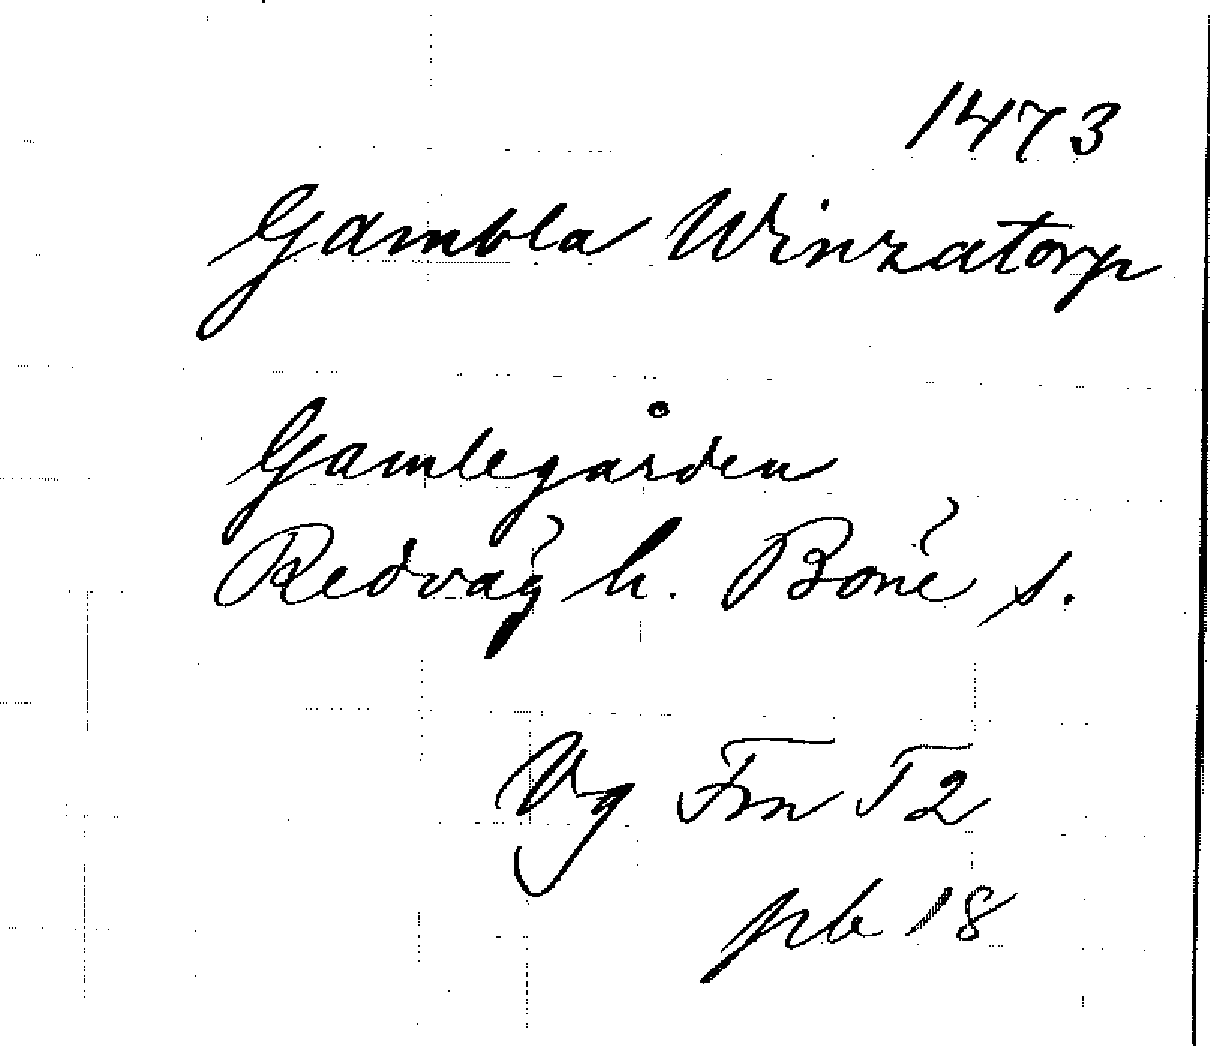 1473
Gambla Winzatorp
Gamlegården
Redväg h. Böne s.
Vg Fm T2
pb 18